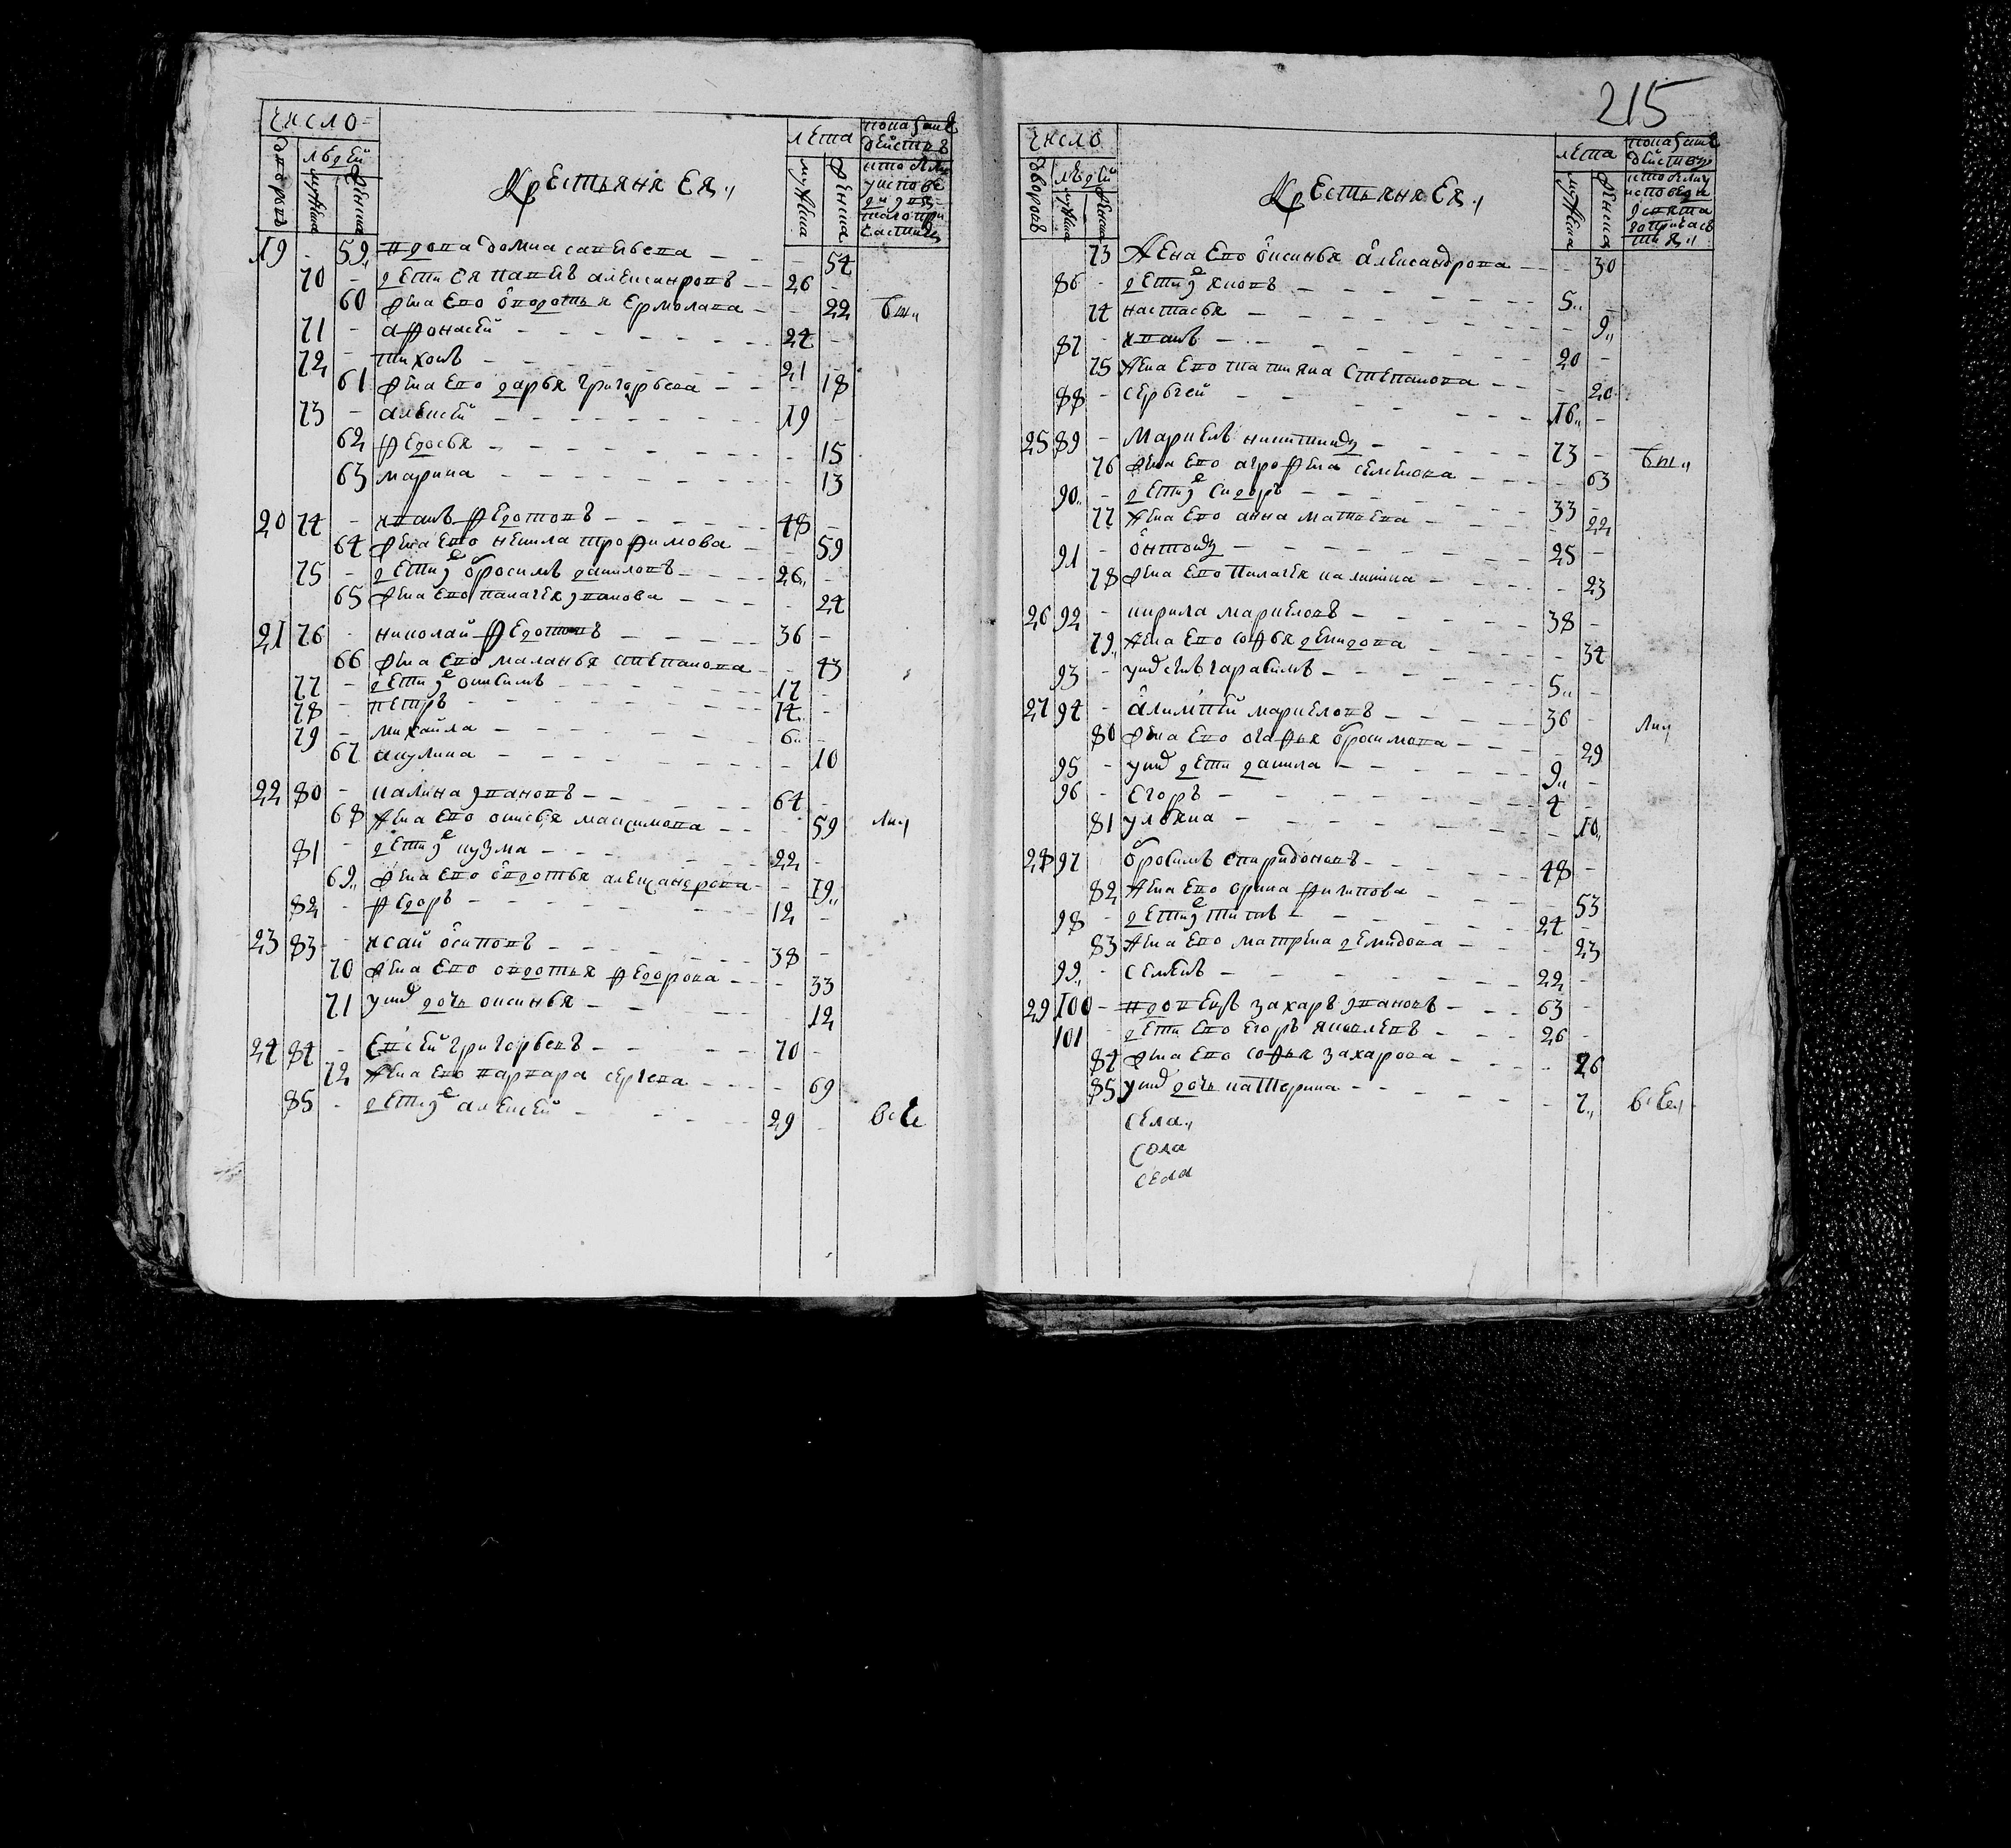 число
дворовъ
людей
мужеска
женска
Крестьяня Ея
лета
мужеска
женска
показание
действ
кто былъ
у испове
ди и св
таго при
частия
19 59 вдова домна савельева 54
70 дети ея павелъ александровъ 26
60 жена ево овдотья Ермолаева 22 быт
71 афонасей 24
72 тихонъ 21
61 жена ево дарья григорьева 18
73 алексей 19
62 федосья 15
63 марина 13
20 74 иванъ федотовъ 48
64 жена ево ненила трофимова 59
75 дети ихъ обросимъ даниловъ 26
65 жена ево палагея иванова 24
21 76 николай федотовъ 36
66 жена ево маланья степанова 43
77 дети ихъ онисимъ 17
78 петръ 14
79 михаила 6
67 акулина 10
22 80 калина ивановъ 64
68 жена ево онисья максимова 59
81 дети ихъ кузма 22
69 жена ево овдотья александрова 19
82 федоръ 12
23 83 исай осиповъ 38
70 жена ево овдотья федорова 33
71 у нихъ дочь оксинья 12
24 84 Евсей григорьевъ 70
72 жена ево варвара сергеева 69
85 дети ихъ алексей 29 все
215
число
дворовъ
людей
мужеска
женска
Крестьяня Ея
лета
мужеска
женска
показание
действ
кто были
исповеди
и святаго
причас
тия
73 Жена Ево оксинья александрова 30
86 дети ихъ яковъ 5
74 настасья 9
87 иванъ 20
75 жена ево татияна Степанова 20
88 сергей 16
25 89 Маркелъ никитинъ 73 быт
76 жена ево агрофена семенова 63
90 дети ихъ Сидоръ 33
77 жена ево анна матвеева 22
91 онтонъ 25
78 жена ево палагея калинина 23
26 92 кирила маркеловъ 38
79 жена ево софья демидова 34
93 у нихъ сынъ гарасимъ 5
27 94 алимпей маркеловъ 36
80 жена ево огафья обросимова 29
95 у нихъ дети данила 9
96 Егоръ 4
81 ульяна 10
28 97 обросимъ спиридоновъ 48
82 жена ево орина филипова 53
98 дети ихъ титъ 24
83 жена ево матрена демидова 23
99 семенъ 22
29 100 вдовецъ захаръ ивановъ 63
101 дети ево егоръ яковлевъ 26
84 жена ево софья захарова 26
85 у нихъ дочь катерина 7 все
села
села
села